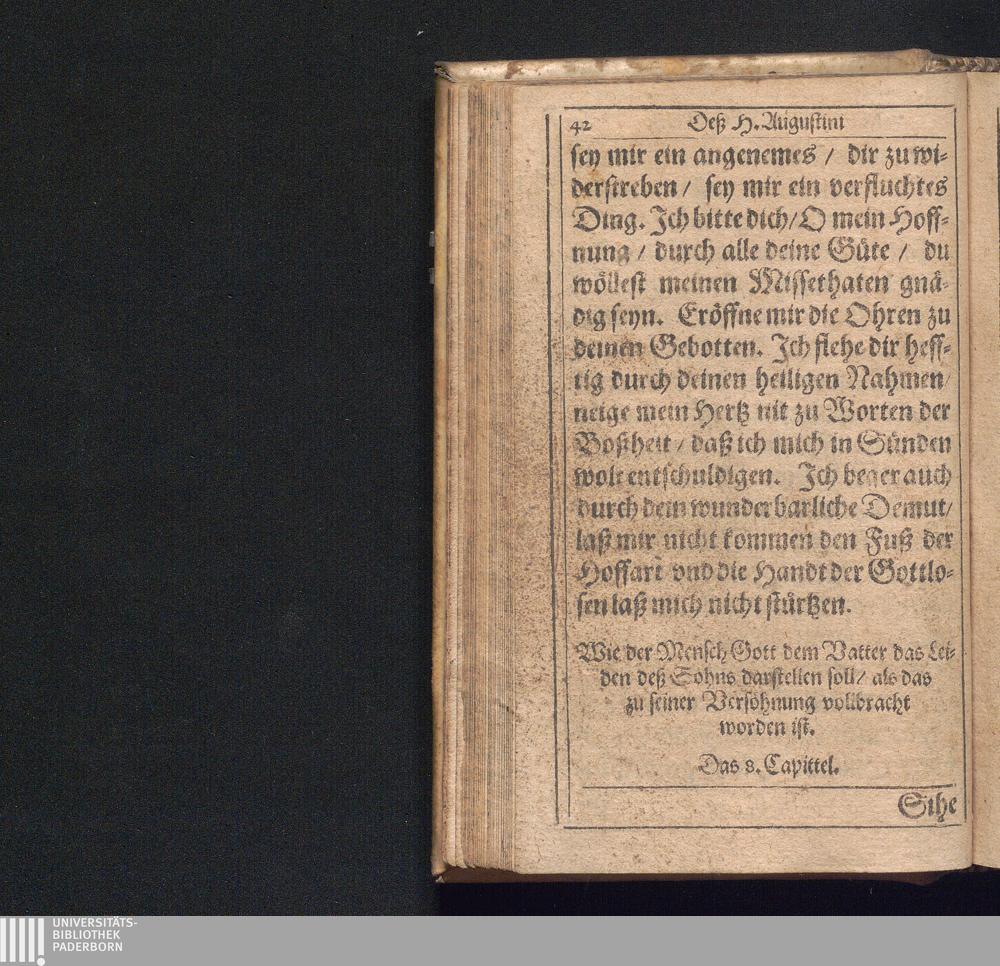 42 Deß H. Augustini
sey mir ein angenemes / dir zu wi-
derstreben / sey mir ein verfluchtes
Ding. Ich bitte dich / O mein Hoff-
nung / durch alle deine Güte / du
wöllest meinen Missethaten gnä-
dig seyn. Eröffne mir die Ohren zu
deinen Gebotten. Ich flehe dir heff-
tig durch deinen heiligen Nahmen /
neige mein Hertz nit zu Worten der
Boßheit / daß ich mich in Sünden
wolt entschuldigen. Ich beger auch
durch dein wunderbarliche Demut /
laß mir nicht kommen den Fuß der
Hoffart vnd die Handt der Gottlo-
sen laß mich nicht stürtzen.
Wie der Mensch Gott dem Vatter das Lei-
den deß Sohns darstellen soll / als das
zu seiner Versöhnung vollbracht
worden ist.
Das 8. Capittel.
Sihe
UNIVERSITÄTS-
BIBLIOTHEK
PADERBORN